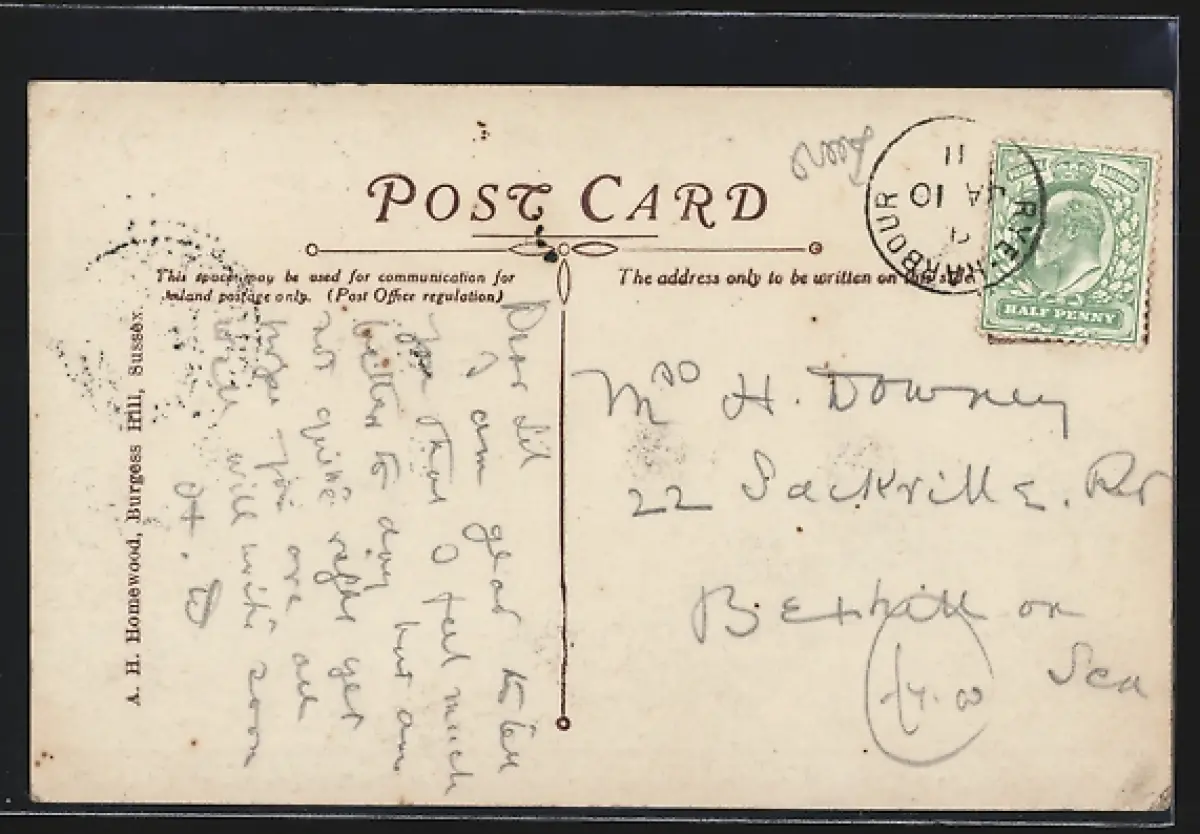 POST CARD
This space may be used for communication for
Inland postage only. (Post Office regulation)
The address only to be written on this side
A. H. Homewood, Burgess Hill, Sussex.
RYE HARBOUR
JA 10
11
HALF PENNY
Dear Lil
I am glad to tell
you that I feel much
better to day but am
not quite right yet
hope you are all
well will write soon
H. D
Mrs H. Downey
22 Sackville. Rd
Bexhill on
Sea